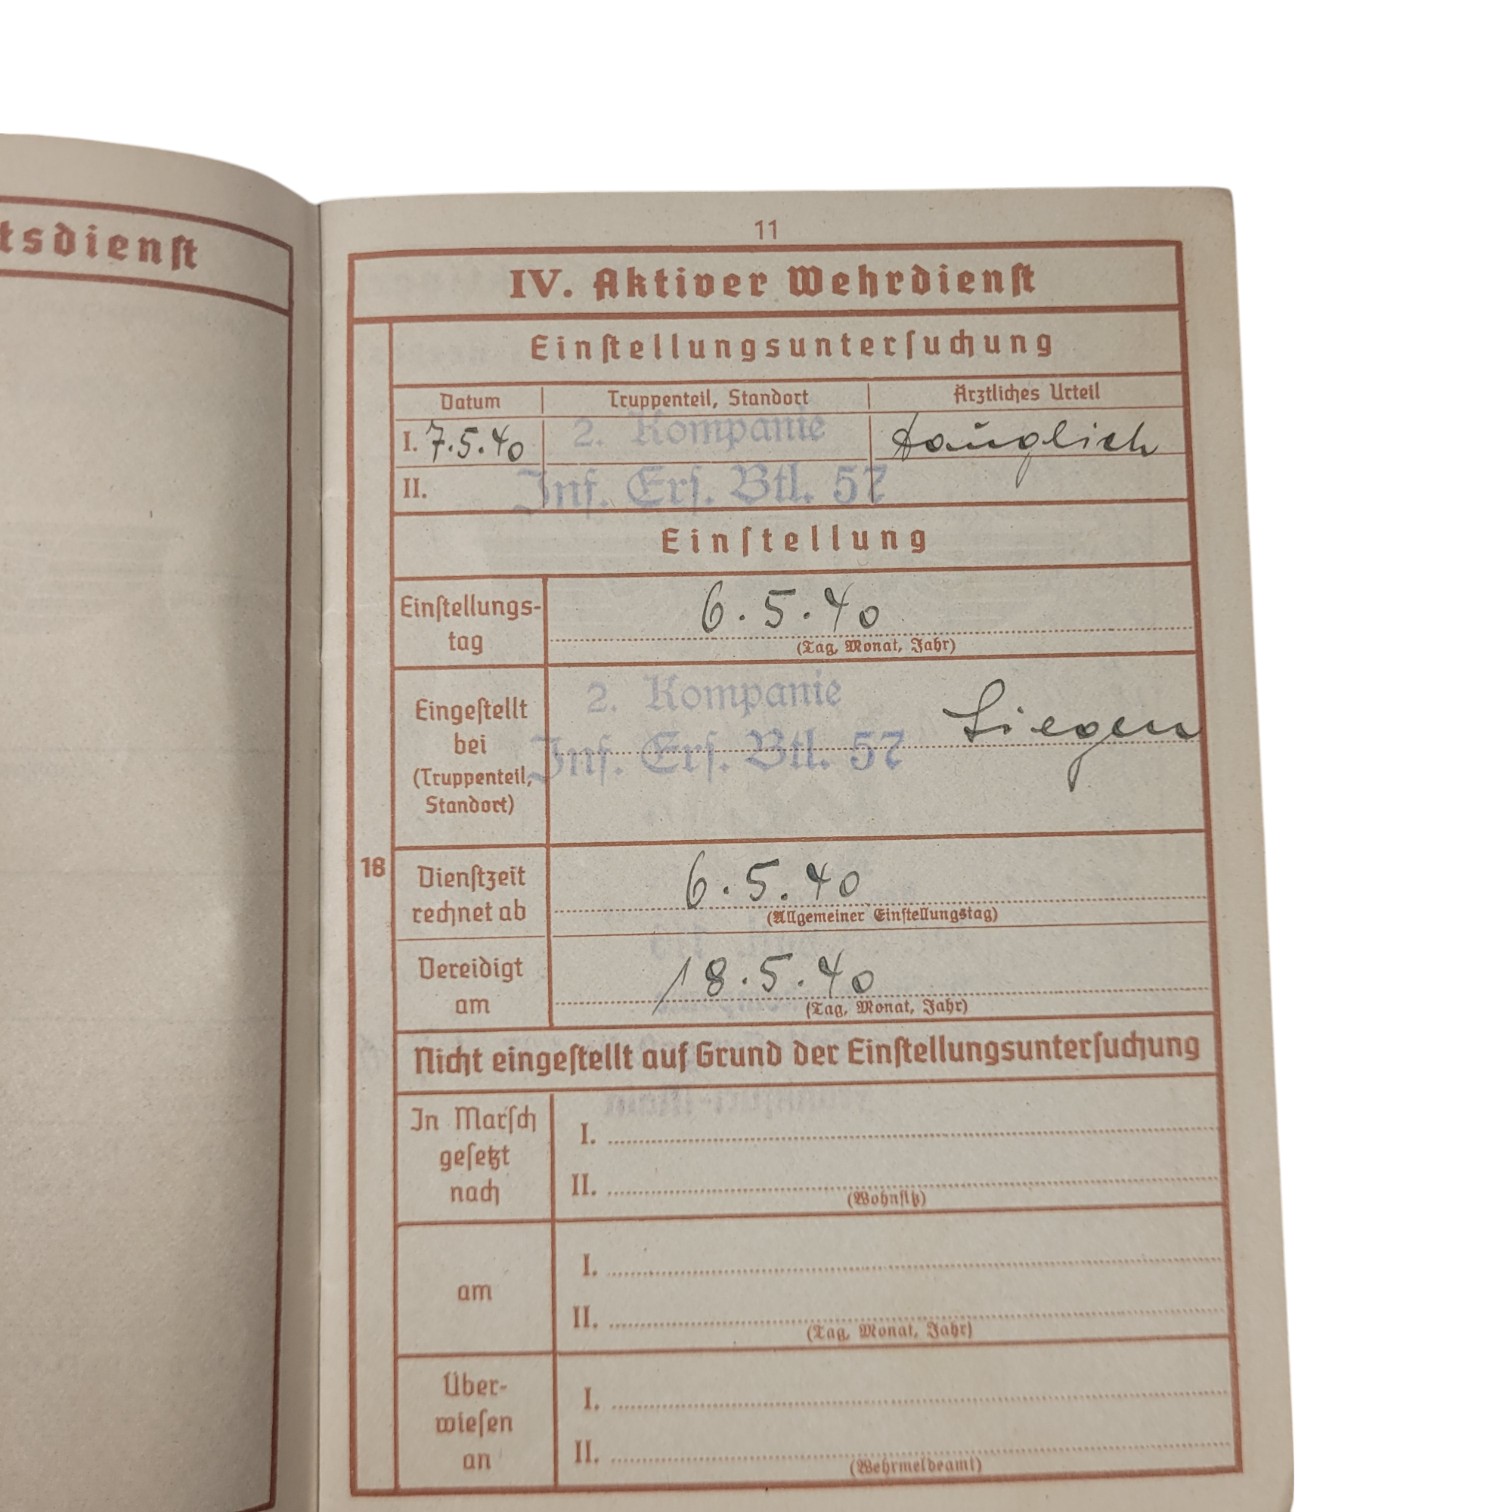 tsdienst
11
IV. Aktiver Wehrdienst
Einstellungsuntersuchung
Datum Truppenteil, Standort Ärztliches Urteil
I. 7.5.40 2. Kompanie tauglich
II. Inf. Ers. Btl. 57
Einstellung
Einstellungs-
tag
6.5.40
(Tag, Monat, Jahr)
Eingestellt
bei
(Truppenteil,
Standort)
2. Kompanie
Inf. Ers. Btl. 57
Siegen
18
Dienstzeit
rechnet ab
6.5.40
(Allgemeiner Einstellungstag)
Vereidigt
am
18.5.40
(Tag, Monat, Jahr)
Nicht eingestellt auf Grund der Einstellungsuntersuchung
In Marsch
gesetzt
nach
I.
II.
(Wohnsitz)
am
I.
II.
(Tag, Monat, Jahr)
Über-
wiesen
an
I.
II.
(Wehrmeldeamt)